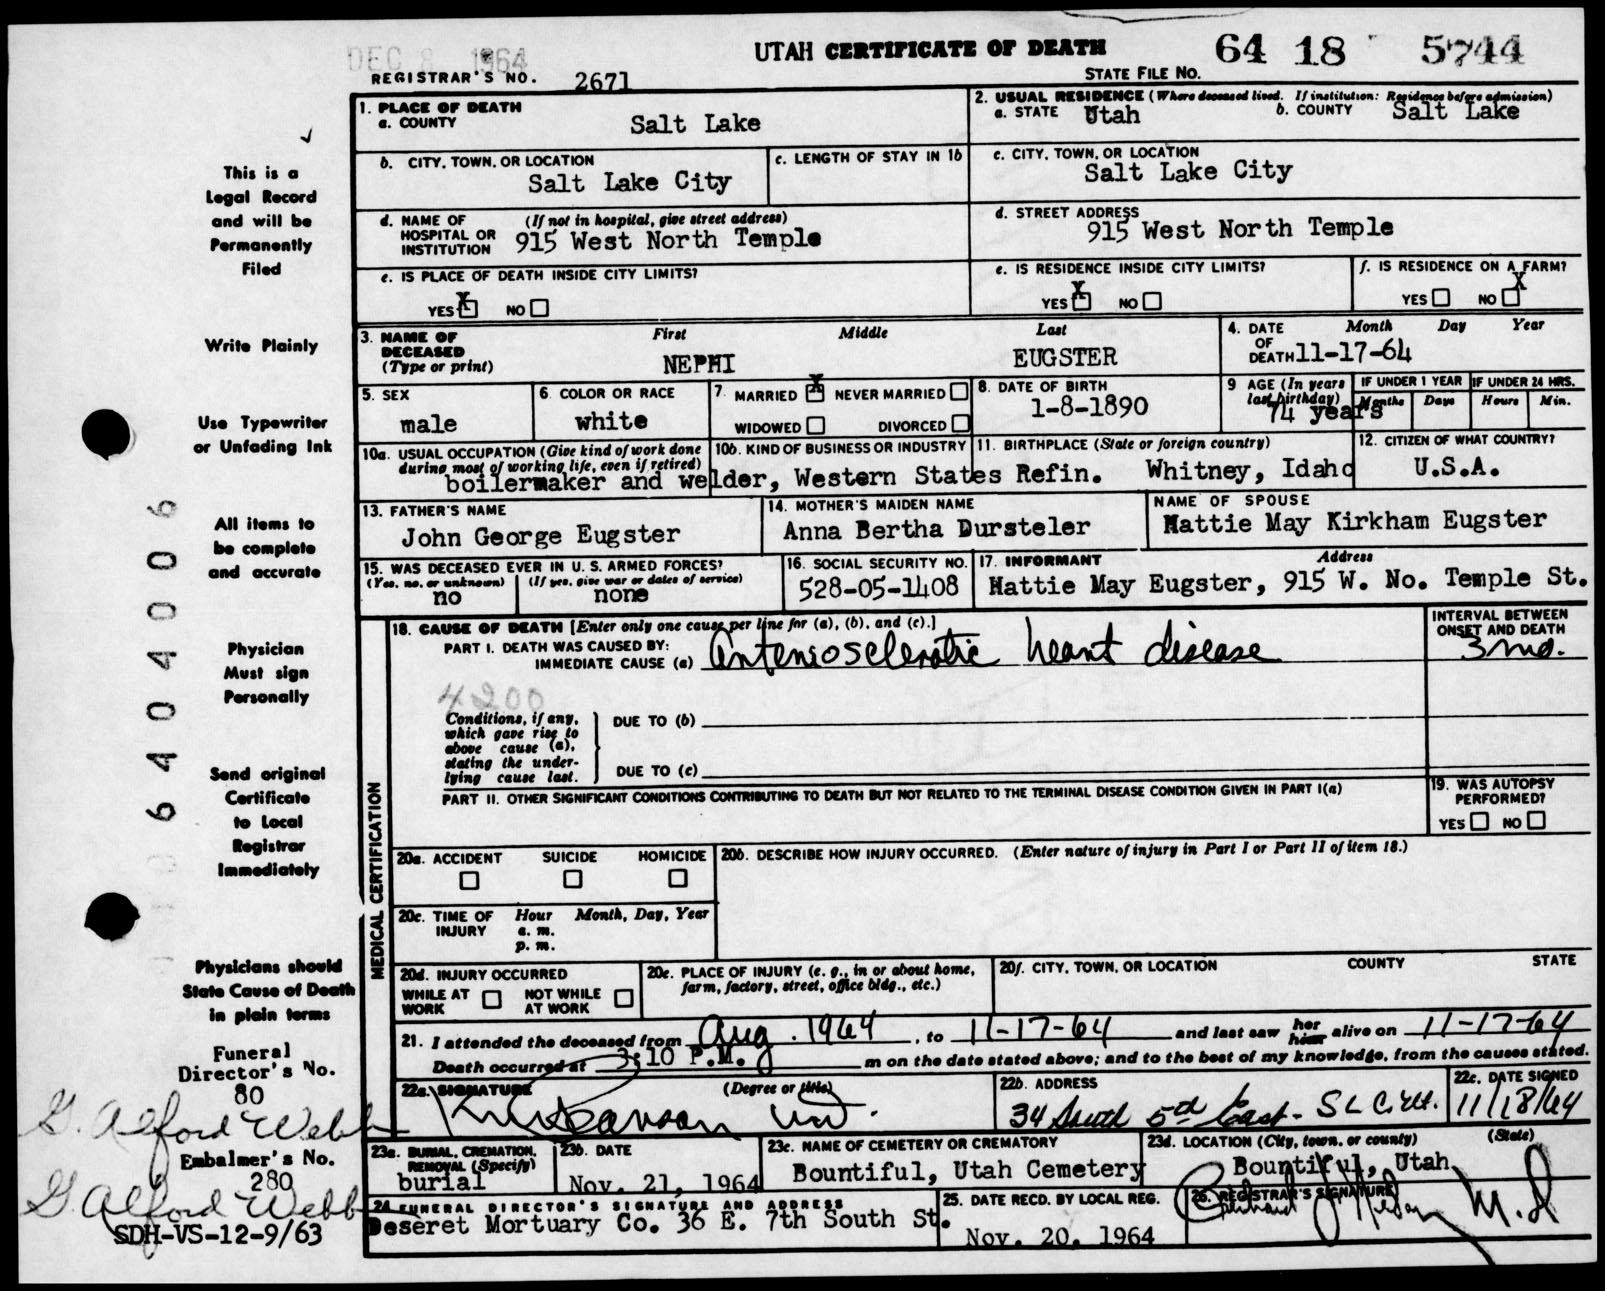 DEC 8 1964
UTAH CERTIFICATE OF DEATH 64 18 5744
REGISTRAR'S NO. 2671 STATE FILE NO.
1. PLACE OF DEATH
a. COUNTY Salt Lake
2. USUAL RESIDENCE (Where deceased lived. If institution: Residence before admission)
a. STATE Utah b. COUNTY Salt Lake
b. CITY, TOWN, OR LOCATION
Salt Lake City
c. LENGTH OF STAY IN 1b
c. CITY, TOWN, OR LOCATION
Salt Lake City
d. NAME OF HOSPITAL OR INSTITUTION (If not in hospital, give street address)
915 West North Temple
d. STREET ADDRESS
915 West North Temple
e. IS PLACE OF DEATH INSIDE CITY LIMITS?
YES X NO
e. IS RESIDENCE INSIDE CITY LIMITS?
YES X NO
f. IS RESIDENCE ON A FARM?
YES NO X
3. NAME OF DECEASED (Type or print)
First Middle Last
NEPHI EUGSTER
4. DATE OF DEATH Month Day Year
11-17-64
5. SEX
male
6. COLOR OR RACE
white
7. MARRIED X NEVER MARRIED
WIDOWED DIVORCED
8. DATE OF BIRTH
1-8-1890
9 AGE (In years last birthday)
74 years
IF UNDER 1 YEAR
Months Days
IF UNDER 24 HRS.
Hours Min.
10a. USUAL OCCUPATION (Give kind of work done during most of working life, even if retired)
10b. KIND OF BUSINESS OR INDUSTRY
boilermaker and welder, Western States Refin.
11. BIRTHPLACE (State or foreign country)
Whitney, Idaho
12. CITIZEN OF WHAT COUNTRY?
U.S.A.
13. FATHER'S NAME
John George Eugster
14. MOTHER'S MAIDEN NAME
Anna Bertha Dursteler
NAME OF SPOUSE
Mattie May Kirkham Eugster
15. WAS DECEASED EVER IN U. S. ARMED FORCES?
(Yes, no, or unknown) (If yes, give war or dates of service)
no none
16. SOCIAL SECURITY NO.
528-05-1408
17. INFORMANT Address
Mattie May Eugster, 915 W. No. Temple St.
18. CAUSE OF DEATH [Enter only one cause per line for (a), (b), and (c).]
PART I. DEATH WAS CAUSED BY:
IMMEDIATE CAUSE (a) arteriosclerotic heart disease
INTERVAL BETWEEN ONSET AND DEATH
3 mo.
4200
Conditions, if any, which gave rise to above cause (a), stating the underlying cause last.
DUE TO (b)
DUE TO (c)
PART II. OTHER SIGNIFICANT CONDITIONS CONTRIBUTING TO DEATH BUT NOT RELATED TO THE TERMINAL DISEASE CONDITION GIVEN IN PART I(a)
19. WAS AUTOPSY PERFORMED?
YES NO
MEDICAL CERTIFICATION
20a. ACCIDENT SUICIDE HOMICIDE
20b. DESCRIBE HOW INJURY OCCURRED. (Enter nature of injury in Part I or Part II of item 18.)
20c. TIME OF INJURY Hour Month, Day, Year
a. m.
p. m.
20d. INJURY OCCURRED
WHILE AT WORK NOT WHILE AT WORK
20e. PLACE OF INJURY (e. g., in or about home, farm, factory, street, office bldg., etc.)
20f. CITY, TOWN, OR LOCATION COUNTY STATE
21. I attended the deceased from Aug. 1964, to 11-17-64 and last saw her him alive on 11-17-64
Death occurred at 3:10 P.M. m on the date stated above; and to the best of my knowledge, from the causes stated.
22a. SIGNATURE (Degree or title)
22b. ADDRESS
34 South 5th East - S L C. Ut.
22c. DATE SIGNED
11/18/64
23a. BURIAL, CREMATION, REMOVAL (Specify)
burial
23b. DATE
Nov. 21, 1964
23c. NAME OF CEMETERY OR CREMATORY
Bountiful, Utah Cemetery
23d. LOCATION (City, town, or county) (State)
Bountiful, Utah
24 FUNERAL DIRECTOR'S SIGNATURE AND ADDRESS
Deseret Mortuary Co. 36 E. 7th South St.
25. DATE RECD. BY LOCAL REG.
Nov. 20, 1964
26. REGISTRAR'S SIGNATURE
M.D
This is a
Legal Record
and will be
Permanently
Filed
Write Plainly
Use Typewriter
or Unfading Ink
All items to
be complete
and accurate
Physician
Must sign
Personally
Send original
Certificate
to Local
Registrar
Immediately
Physicians should
State Cause of Death
in plain terms
Funeral
Director's No.
80
G. Alford Webb
Embalmer's No.
280
G. Alford Webb
SDH-VS-12-9/63
6404006